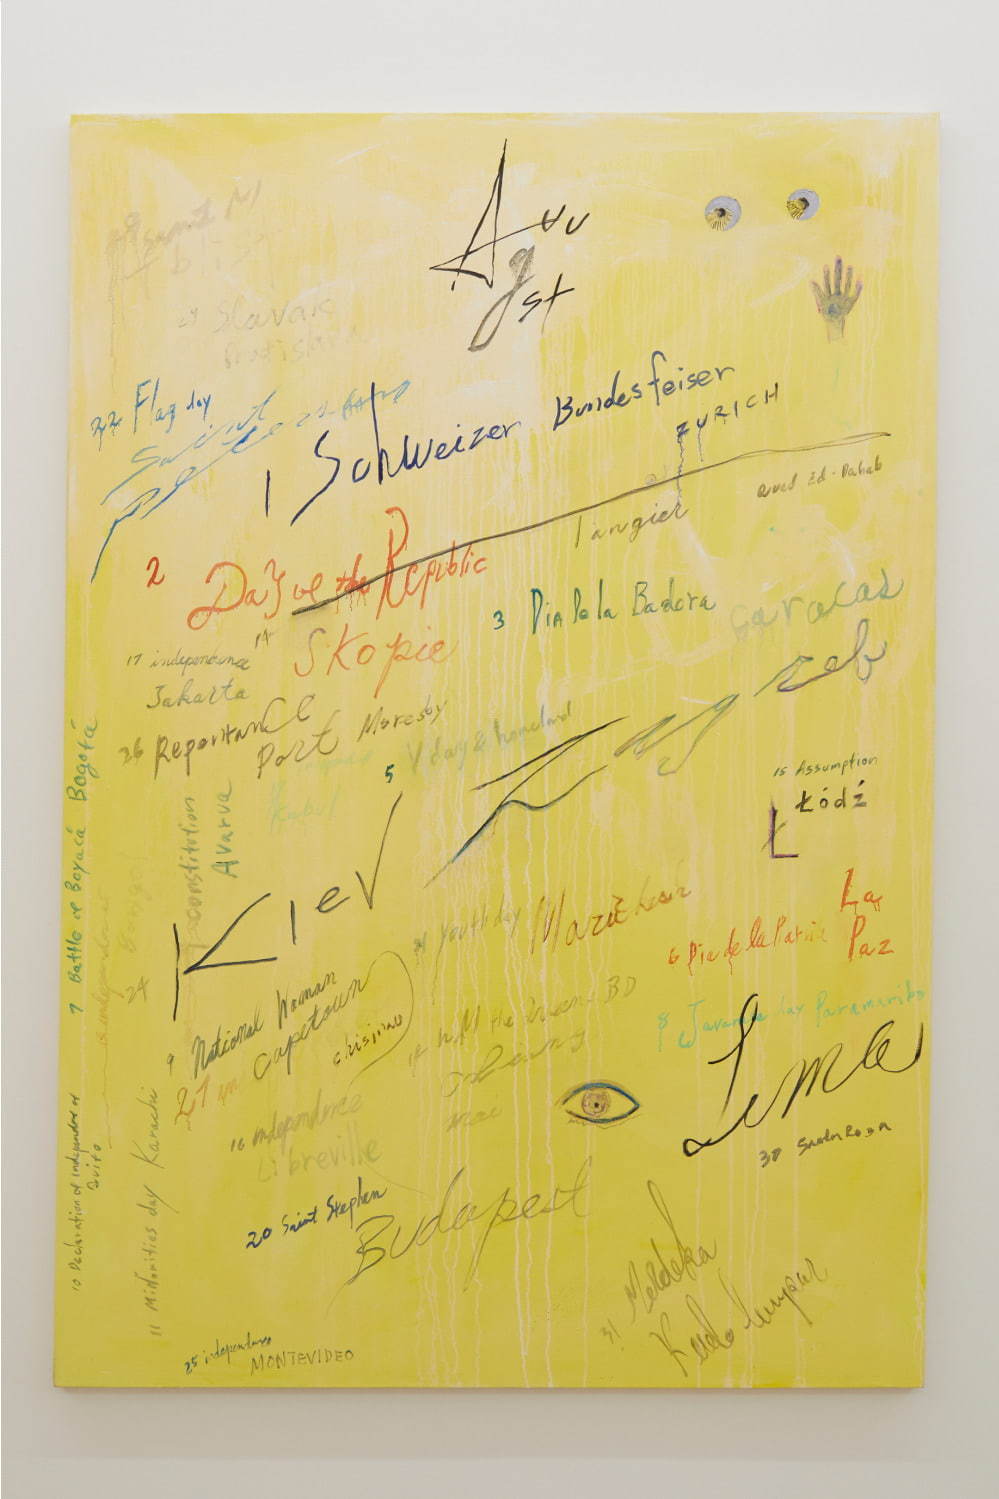 Auu
g
st
29 Slovak
Bratislava
22 Flag day
Saint
1 Schweizer Bundesfeiser
ZYRICH
Oued Ed-Dahab
Tangier
14
2 Day oe the Republic
Skopie
3 Dia De la Badera
Caracas
17 independence
Jakarta
26 Reporitance
Port Moresby
5 V day & homeland
Zagreb
Kabul
15 Assumption
Łódź
Ł
7 Battle of Boyacá Bogotá
constitution
Avarua
Kiev
24
21 Youth day Marrakesh
6 Dia de la Patria
La
Paz
8 Javanese day Paramaribo
9 National Woman
Capetown
27
chisinau
12 H.M the Queen BD
Lima
30 Santa Rosa
16 independence
Libreville
10 Declaration of independence of
Quito
11 Minorities day Karachi
20 Saint Stephen
Budapest
31 Merdeka
Kuala lumpur
25 independence
MONTEVIDEO